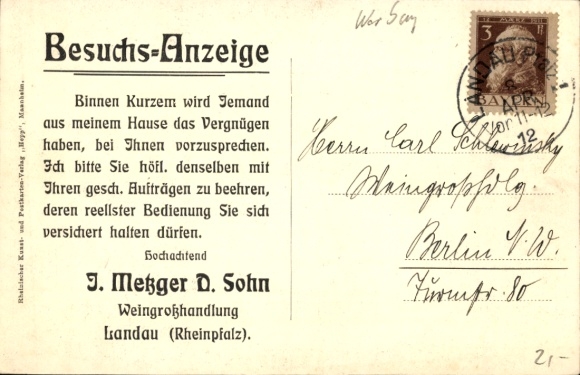 Besuchs-Anzeige
Binnen Kurzem wird Jemand
aus meinem Hause das Vergnügen
haben, bei Ihnen vorzusprechen.
Ich bitte Sie höfl. denselben mit
Ihren gesch. Aufträgen zu beehren,
deren reellster Bedienung Sie sich
versichert halten dürfen.
Hochachtend
J. Metzger D. Sohn
Weingroßhandlung
Landau (Rheinpfalz).
Rheinischer Kunst- und Postkarten-Verlag „Hepp", Mannheim.
12 MÄRZ 1911
3
BAYERN
LANDAU Pfalz
8
APR
Vor 11-12
12
Herrn Carl Schlewinsky
Weingroßhdlg.
Berlin N.W.
Turmstr. 80
2,-